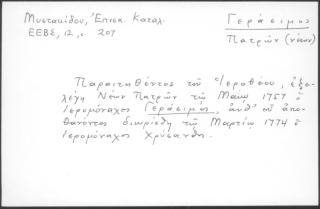 Μυστακίδου, Ἐπισκ. Καταλ.
ΕΕΒΣ, 12, σ. 207
Γεράσιμος
Πατρῶν (νέων)
Παραιτηθέντος τοῦ Ἱεροθέου, ἐξε-
λέγη Νέων Πατρῶν τῷ Μαίῳ 1757 ὁ
Ἱερομόναχος Γεράσιμος, ἀνθ' οὗ ἀπο-
θανόντος διωρίσθη τῷ Μαρτίῳ 1774 ὁ
Ἱερομόναχος Χρύσανθος.